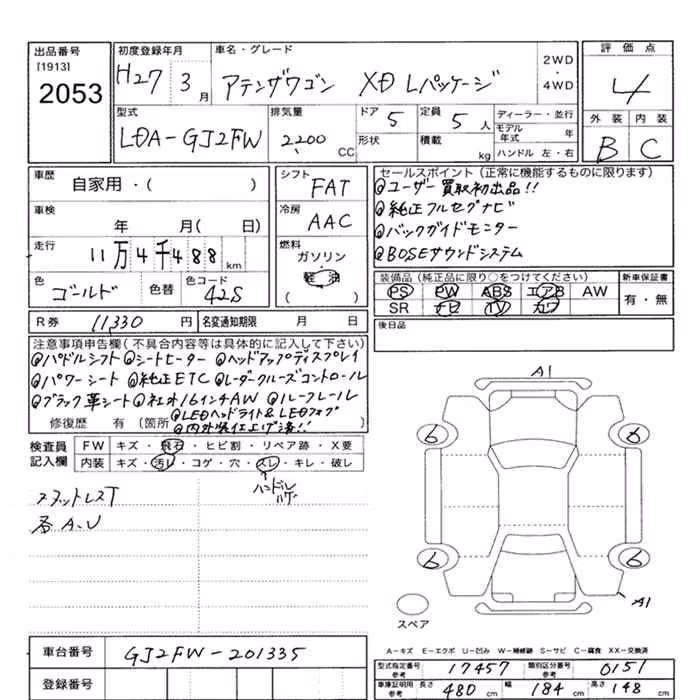 出品番号
[1913]
2053
初度登録年月
H27 3 月
車名・グレード
アテンザワゴン XD Lパッケージ
2WD
・
4WD
評価点
4
外装 内装
B C
型式
LDA-GJ2FW
排気量
2200 CC
ドア 5
形状
定員 5 人
積載 kg
ディーラー・並行
モデル年式 年
ハンドル 左・右
車歴
自家用・( )
車検
年 月( 日)
走行
11万4千488 km
色
ゴールド
色替
色コード
42S
シフト
FAT
冷房
AAC
燃料
ガソリン
軽油
( )
セールスポイント(正常に機能するものに限ります)
@ユーザー買取初出品!!
@純正フルセグナビ
@バックガイドモニター
@BOSEサウンドシステム
装備品(純正品に限り○をつけてください)
PS PW ABS エアB AW
SR ナビ TV カワ
新車保証書
有・無
R券 11330 円
名変通知期限 月 日
後日品
注意事項申告欄(不具合内容等は具体的に記入して下さい)
@パドルシフト @シートヒーター @ヘッドアップディスプレイ
@パワーシート @純正ETC @レーダークルーズコントロール
@ブラック革シート @社外16インチAW @ルーフレール
@LEDヘッドライト&LEDフォグ
修復歴 有 (箇所
@内外装仕上げ済!!
検査員
記入欄
FW キズ・飛石・ヒビ割・リペア跡・X要
内装 キズ・汚レ・コゲ・穴・スレ・キレ・破レ
ハンドル
ハゲ
スタットレスT
各A.U
A1
6 6
6 6
A1
スペア
A－キズ E－エクボ U－凹み W－補修跡 S－サビ C－腐食 XX－交換済
車台番号
GJ2FW-201335
登録番号
型式指定番号
参考
17457
類別区分番号
参考
0151
車庫証明用
参考
長さ 480 cm
幅 184 cm
高さ 148 cm